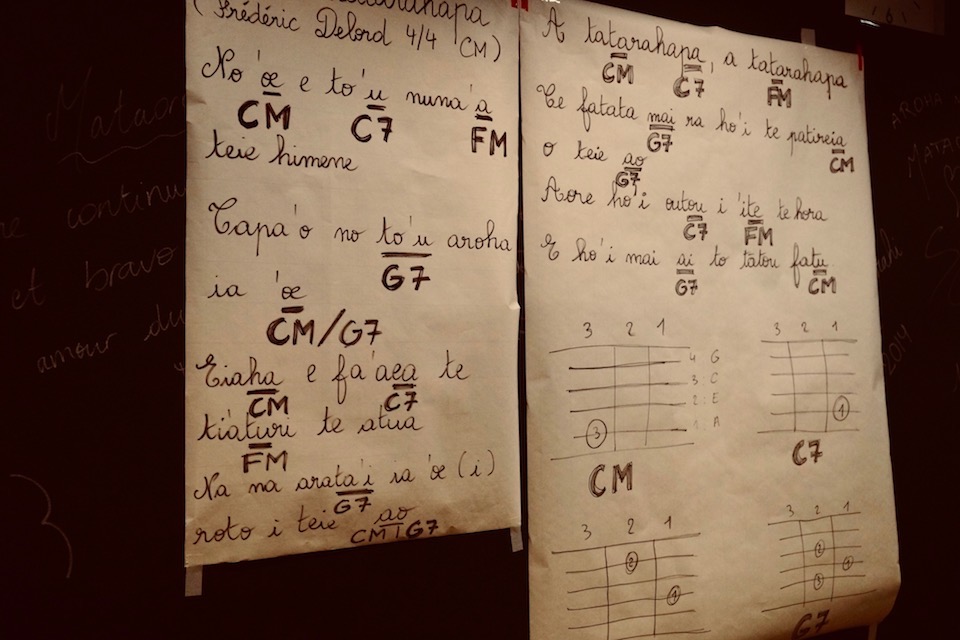 (Frédéric Delord 4/4 CM)
No 'oe e to'u nuna'a
CM C7 FM
teie himene
Tapa'o no to'u aroha
G7
ia 'oe
CM/G7
Eiaha e fa'aea te
CM C7
tiàturi te atua
FM
Na na arata'i ia 'oe (i)
G7
roto i teie ao
CM | G7
A tatarahapa, a tatarahapa
CM C7 FM
Te fatata mai ra ho'i te patireia
G7 CM
o teie ao
G7
Aore ho'i outou i 'ite te hora
C7 FM
E ho'i mai ai to tātou fatu
G7 CM
3 2 1
4 G
3 : C
2 : E
1 : A
3
CM
3 2 1
1
C7
3 2 1
2
1
3 2 1
2
1
3
G7
et bravo
amour du
2014